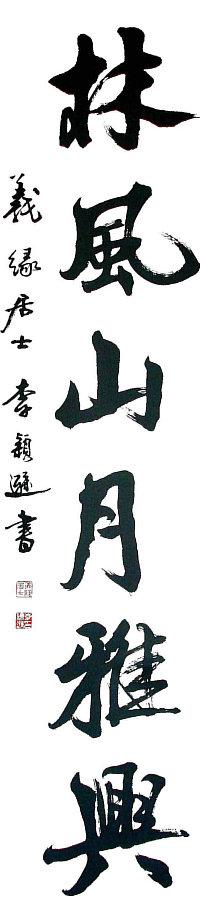 林風山月雅興
義緣居士李穎遜書